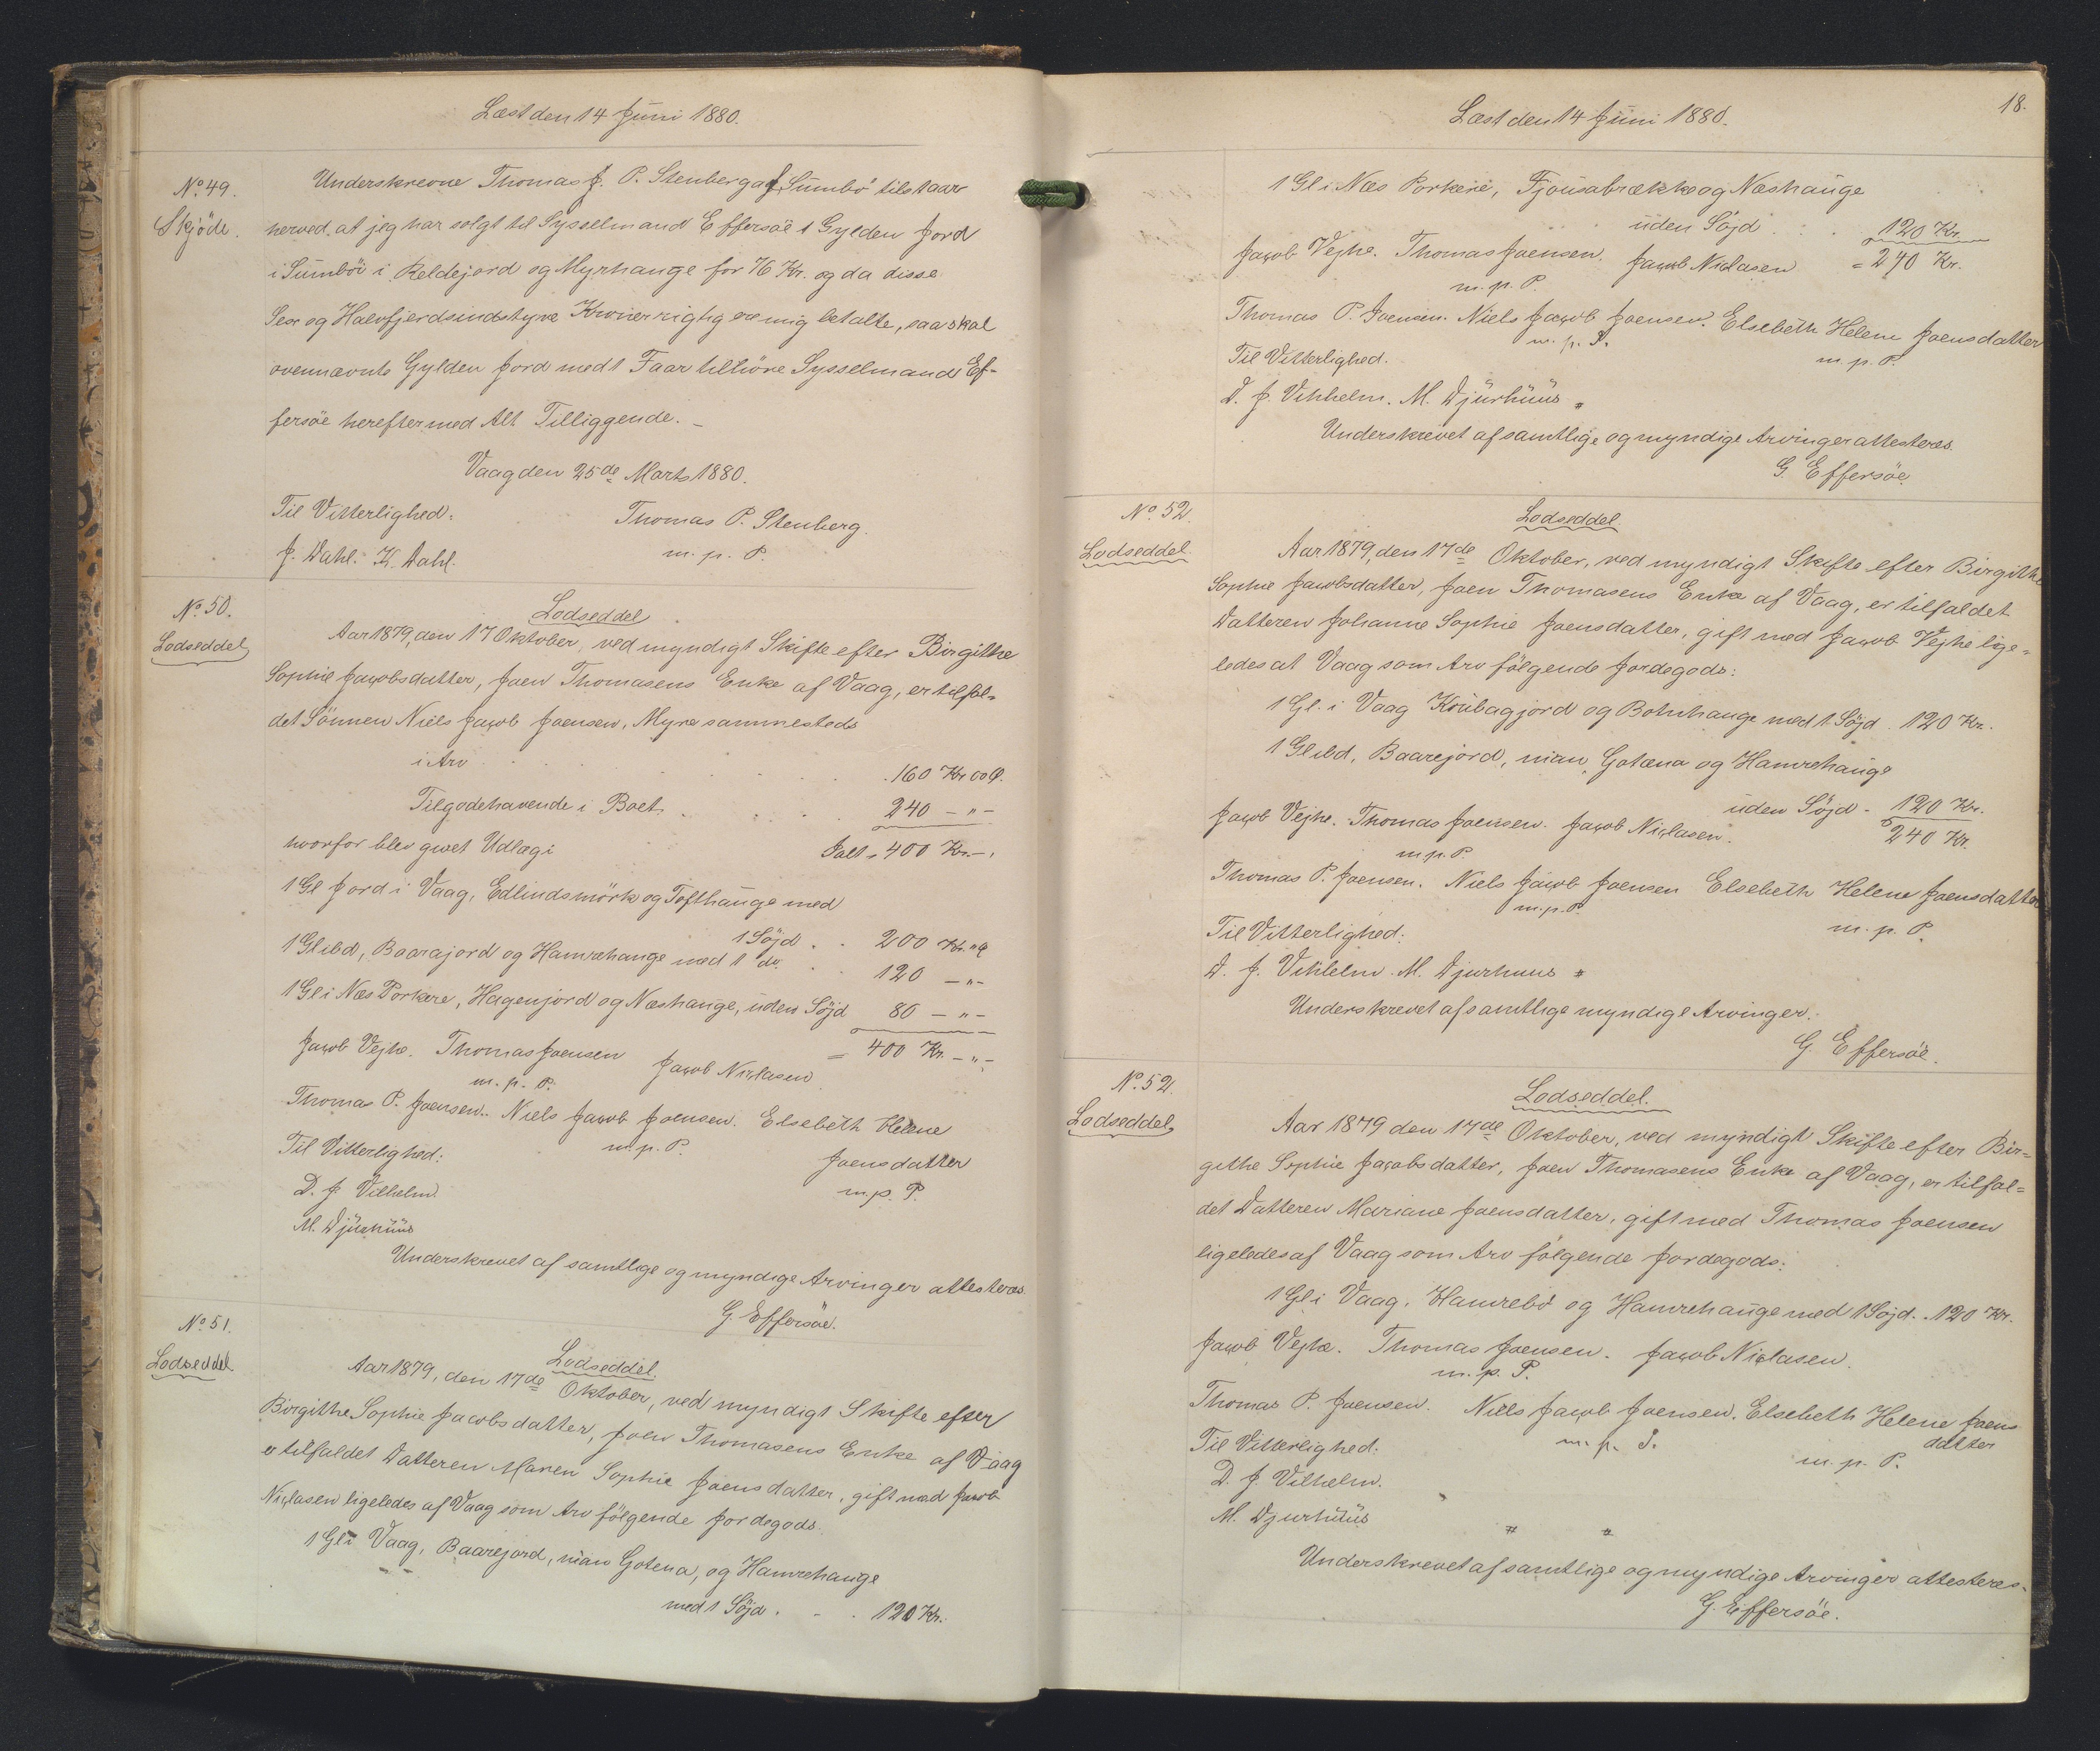 Læst den 14 Juni 1880.
No. 49.
Skjöde.
Underskrevne Thomas J. P. Stenberg af Sumbö tilstaar
herved, at jeg har solgt til Sysselmand Effersöe 1 Gylden Jord
i Sumböe i Reldejord og Myrhauge for 76 Kr. og da disse
Sex og Halvfjerdsindstyve Kroner rigtig ere mig betalte, saa skal
ovennævnte Gylden Jord med 1 Faar tilhöre Sysselmand Ef-
fersöe herefter med Alt Tilliggende. –
Vaag den 25de Marts 1880.
Til Vitterlighed:
Thomas P. Stenberg.
J. Dahl. K. Dahl.
m. p. P.
No. 50.
Lodseddel
Lodseddel
Aar 1879, den 17 Oktober, ved myndigt Skifte efter Birgithe
Sophie Jacobsdatter, Joen Thomasens Enke af Vaag, er tilfal=
det Sönnen Niels Jacob Joensen, Myre sammesteds
i Arv . . . 160 Kr 00 Ø.
Tilgodehavende i Boet . . . 240 – " –
hvorfor blev givet Udlæg i Ialt = 400 Kr. – .
1 Gl Jord i Vaag, Edlindsmörk og Tofthauge med
1 Söjd . . 200 Kr. "
1 Gl ibd, Baarajord og Hamrehauge med 1 do. . . 120 – " –
1 Gl i Næs Porkere, Hagenjord og Næshauge, uden Söjd 80 – " –
= 400 Kr. – " –
Jacob Vejhe. Thomas Joensen Jacob Niclasen
m. p. P.
Thomas P. Joensen. Niels Jacob Joensen. Elsebeth Helene
m. p. P.
Joensdatter
m. p. P.
Til Vitterlighed:
D. J. Vilhelm.
M. Djurhuus
Underskrevet af samtlige og myndige Arvinger attesteres.
G. Effersöe.
No. 51.
Lodseddel
Lodseddel.
Aar 1879, den 17de Oktober, ved myndigt Skifte efter
Birgithe Sophie Jacobsdatter, Joen Thomasens Enke af Vaag
er tilfaldet Datteren Maren Sophie Joensdatter, gift med Jacob
Niclasen ligeledes af Vaag som Arv fölgende Jordegods.
1 Gl i Vaag, Baarejord, nian Gotena, og Hamrehauge
med 1 Söjd . . . 120 Kr.
Læst den 14 Juni 1880.
18.
1 Gl i Næs Porkere, Fjousabrække og Næshauge
uden Söjd . . . 120 Kr.
= 240 Kr.
Jacob Vejhe. Thomas Joensen. Jacob Niclasen
m. p. P.
Thomas P. Joensen. Niels Jacob Joensen. Elsebeth Helene Joensdatter
m. p. P.
m. p. P.
Til Vitterlighed.
D. J. Vilhelm. M. Djurhuus "
Underskrevet af samtlige og myndige Arvinger attesteres.
G. Effersöe.
No. 52.
Lodseddel.
Lodseddel.
Aar 1879, den 17de Oktober, ved myndigt Skifte efter Birgithe
Sophie Jacobsdatter, Joen Thomasens Enke af Vaag, er tilfaldet
Datteren Johanne Sophie Joensdatter, gift med Jacob Vejhe lige=
ledes at Vaag som Arv fölgende Jordegods:
1 Gl. i Vaag Krubagjord og Botnhauge med 1 Söjd . 120 Kr.
1 Gl ibd, Baarejord, nian, Gotena og Hamrehauge
uden Söjd - 120 Kr.
240 Kr.
Jacob Vejhe. Thomas Joensen. Jacob Niclasen.
m. p. P.
Thomas P. Joensen. Niels Jacob Joensen Elsebeth Helene Joensdatter
m. p. P.
m. p. P.
Til Vitterlighed:
D. J. Vilhelm. M. Djurhuus "
Underskrevet af samtlige myndige Arvinger.
G. Effersöe.
No. 52.
Lodseddel.
Lodseddel.
Aar 1879 den 17de Oktober, ved myndigt Skifte efter Bir=
githe Sophie Jacobsdatter, Joen Thomasens Enke af Vaag, er tilfal=
det Datteren Mariane Joensdatter, gift med Thomas Joensen
ligeledes af Vaag som Arv fölgende Jordegods:
1 Gl i Vaag, Hamrebö og Hamrehauge med 1 Söjd . . 120 Kr.
Jacob Vejhe. Thomas Joensen. Jacob Niclasen.
m. p. P.
Thomas P. Joensen. Niels Jacob Joensen. Elsebeth Helene Joens
datter
m. p. P.
m. p. P.
Til Vitterlighed:
D. J. Vilhelm.
M. Djurhuus
" "
Underskrevet af samtlige og myndige Arvinger attesteres.
G. Effersöe.